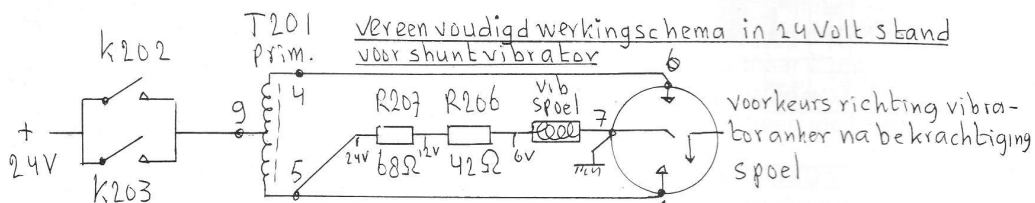 T201
prim.
vereenvoudigd werkingschema in 24Volt stand
voor shuntvibrator
K202
+
24V
K203
9
4
5
6
R207
68Ω
R206
42Ω
vib
spoel
7
24V
12V
6V
min
voorkeurs richting vibra-
toranker na bekrachtiging
spoel